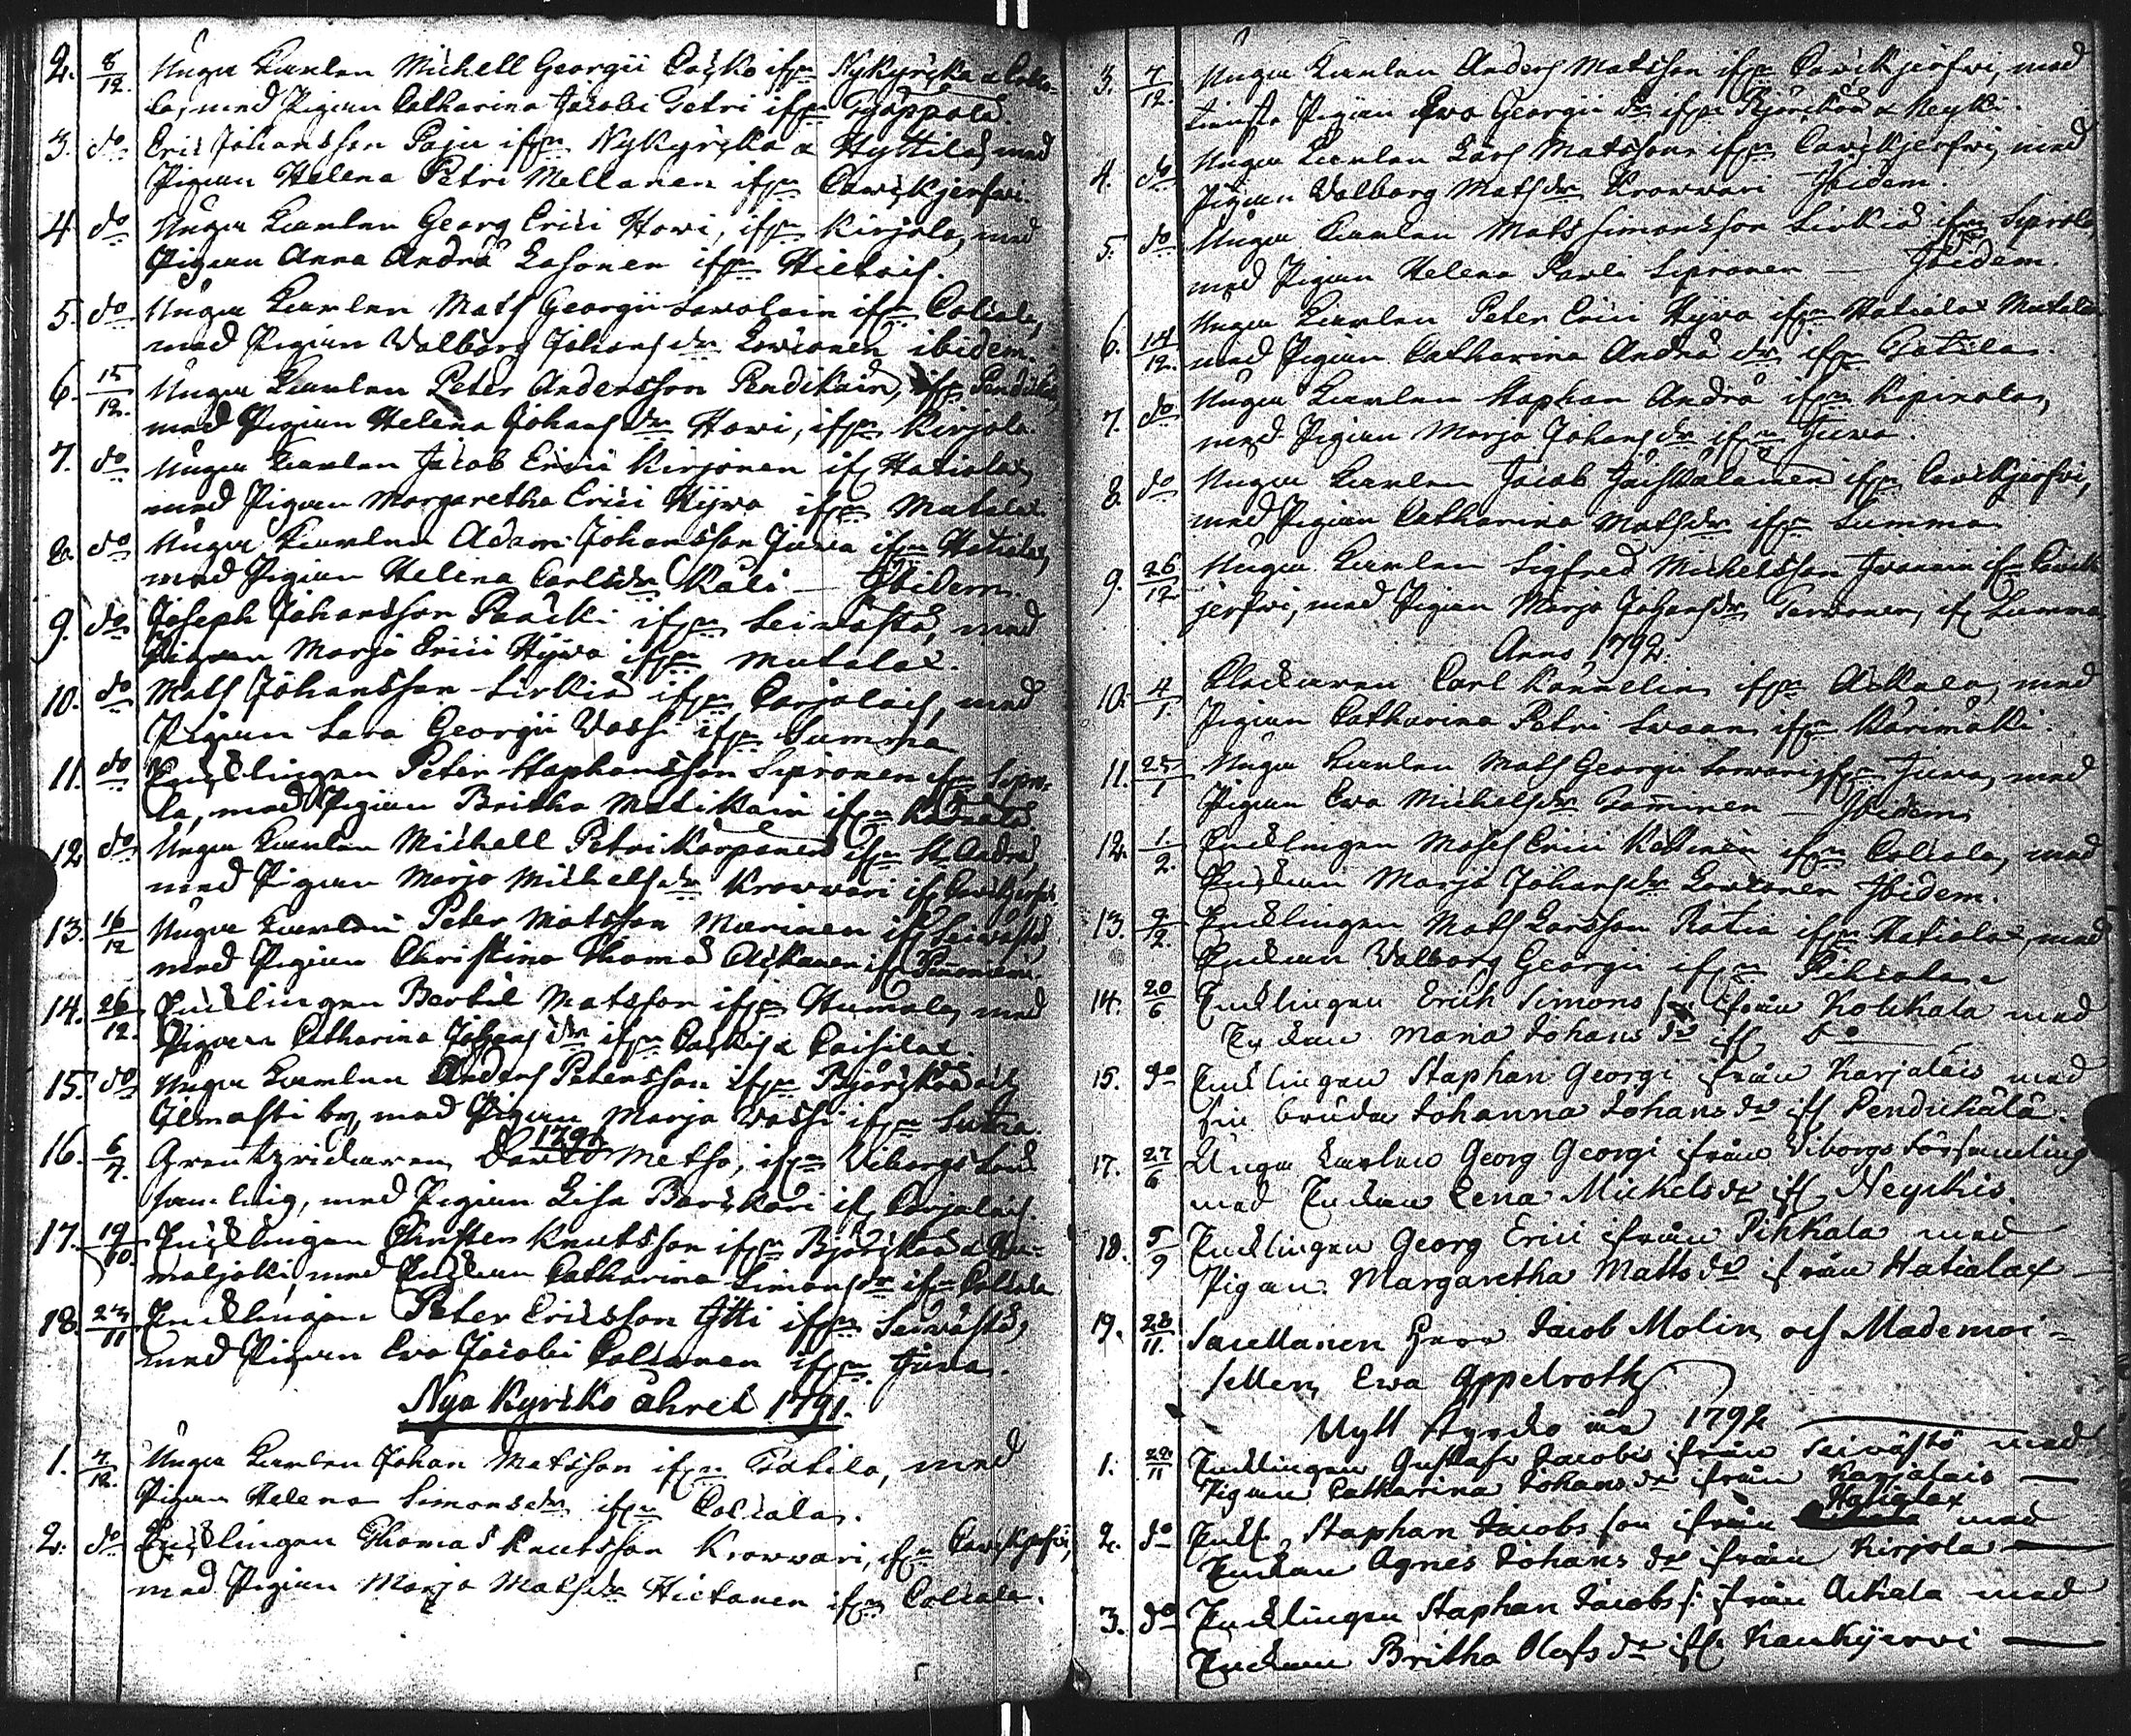 2. 8/12. Unga Karlen Michell Georgii Caisko ifrn Nykyrcka
la, med Pigan Catharina Jacobi Petri ifrn
3. do Eric Johansson Paju ifrn Nykyrcka & Hyttilä, med
Pigan Helena Petri Mellanen ifrn Cawckjerfwi.
4. do Unga Karlen Georg Erici Howi, ifrn Kirjola, med
Pigan Anna Andrä Lasonen ifrn Hietais.
5. do Unga Karlen Mats Georgii Sawolain ifrn Colcala,
med Pigan Walborg Johans dr ibidem.
6. 15/12. Unga Karlen Peter Andersson Pendikain, ifrn
med Pigan Helena Johans dr Howi, ifrn Kirjola.
7. do Unga Karlen Jacob Erici Kirjonen if Hatialax,
med Pigan Margaretha Erici Hijwa ifrn Mutalax.
8. do Unga Karlen Adam Johansson Juwa ifrn Hatialax,
med Pigan Helena Carlsdr Käli — Ibidem.
9. do Joseph Johansson Paacki ifrn Seiwästö, med
Pigan Marja Erici Hijwa ifrn Mutalax.
10. do Mats Johansson Sirkiä ifrn Carjalais, med
Pigan Sara Georgii Wassi ifrn Summa
11. do Encklingen Peter Staphansson Sipronen ifrn Sipro-
la, med Pigan Britha Matikain ifrn
12. do Unga Karlen Michell Petri Karpanen ifrn St. Andræ,
med Pigan Marja Michels dr Krowwari if
13. 16/12 Unga Karlen Peter Matsson Mærinen if Seiwästö,
med Pigan Christina Thomæ Ackanen if
14. 26/12. Encklingen Bertil Matsson ifrn Humala, med
Pigan Catharina Johans dr ifrn
15. do Unga Karlen Anders Petersson ifrn Björckö och
by, med Pigan Marja Wassi ifrn
1791
16. 6/7. Grentzridaren David Metso, ifrn Wiborgs Land
samling, med Pigan Lisa Barckari if Carjalais.
17. 19/10. Encklingen Christer Knutsson ifrn Björckö & Hu-
maljoki, med Enckan Catharina Simons dr ifrn Colcala
18. 23/11 Encklingen Peter Ericsson Itti ifrn Seiwästö,
med Pigan Ewa Jacobi Colcanen ifrn Juwa.
Nya Kyrcko åhret 1791.
1. 4/12. Unga Karlen Johan Matsson ifrn Tatila, med
Pigan Helena Simonsdr ifrn Colcala.
2. do Encklingen Thomas Knutsson Krowwari, ifrn Cawckjerfwi,
med Pigan Marja Matsdr Hietanen ifrn Colcala.
3. 4/12. Unga Karlen Anders Matsson ifrn Cawckjerfwi, med
tienste Pigan Ewa Georgii dr ifrn Björckö & Keyki.
4. do Unga Karlen Lars Matsson ifrn Cawckjerfwi, med
Pigan Walborg Mats dr Krowwari Ibidem.
5. do Unga Karlen Mats Simonsson Sirkiä ifrn Siprola,
med Pigan Helena Pauli Sipronen — Ibidem.
6. 14/12. Unga Karlen Peter Erici Hijwa ifrn Hatialax Mutalax
med Pigan Catharina Andræ dr ifrn Tatila.
7. do Unga Karlen Staphan Andræ ifrn Kipinola,
med Pigan Marja Johans dr ifrn Juwa.
8. do Unga Karlen Jacob Jäiskäläinen ifrn Cawckjerfwi,
med Pigan Catharina Matsdr ifrn Summa
9. 26/12 Unga Karlen Sigfred Michelsson ifrn Cawck
jerfwi, med Pigan Marja Johansdr Terwonen, if Summa
Anno 1792.
10. 4/1. Klockaren Carl Kannelin ifrn Ackala, med
Pigan Catharina Petri Swaan ifrn Karimäki.
11. 25/1 Unga Karlen Mats Georgii ifrn Juwa, med
Pigan Ewa Michels dr Tamminen — Ibidem
12. 1/2. Encklingen Mats Erici ifrn Colcala, med
Enckan Marja Johans dr Ibidem.
13. 9/2. Encklingen Mats Larsson Ratia ifrn Hatialax, med
Enckan Walborg Georgii ifrn
14. 20/6 Encklingen Erich Simons son ifrån Kolckala med
Enckan Maria Johans dr if do
15. do Encklingen Staphan Georgi ifrån Karjalais med
sin bruda Johanna Johans dr if Pendickälä
17. 27/6 Unga Karlen Georg Georgi ifrån Wiborgs Församling
med Enckan Lena Mickels dr if Neyckis.
18. 5/9 Encklingen Georg Erici ifrån Pihkala med
Pigan Margaretha Matts dr ifrån Hatialax
19. 28/11. Sacellanen Herr Jacob Molin, och Mademoi=
sellen, Ewa Appelroth
Nytt Kyrcko år 1792
1. 28/11 Encklingen Gustaf Jacobi ifrån Seiwästö med
Pigan Catharina Johans dr ifrån Karjalais —
2. do Enckl. Staphan Jacobs son ifrån Hatialax med
Enckan Agnes Johans dr ifrån Kirjola —
3. do Encklingen Staphan Jacobs s: ifrån Ackala med
Enckan Britha Olofs dr if Kaukjerwi —